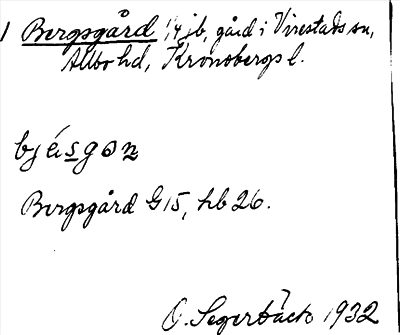 1 Bergsgård 1/4 jb, gård i Virestads sn,
Allbo hd, Kronobergs l.
bjésgon
Bergsgård G 15, hb 26.
O. Segerbäck 1932